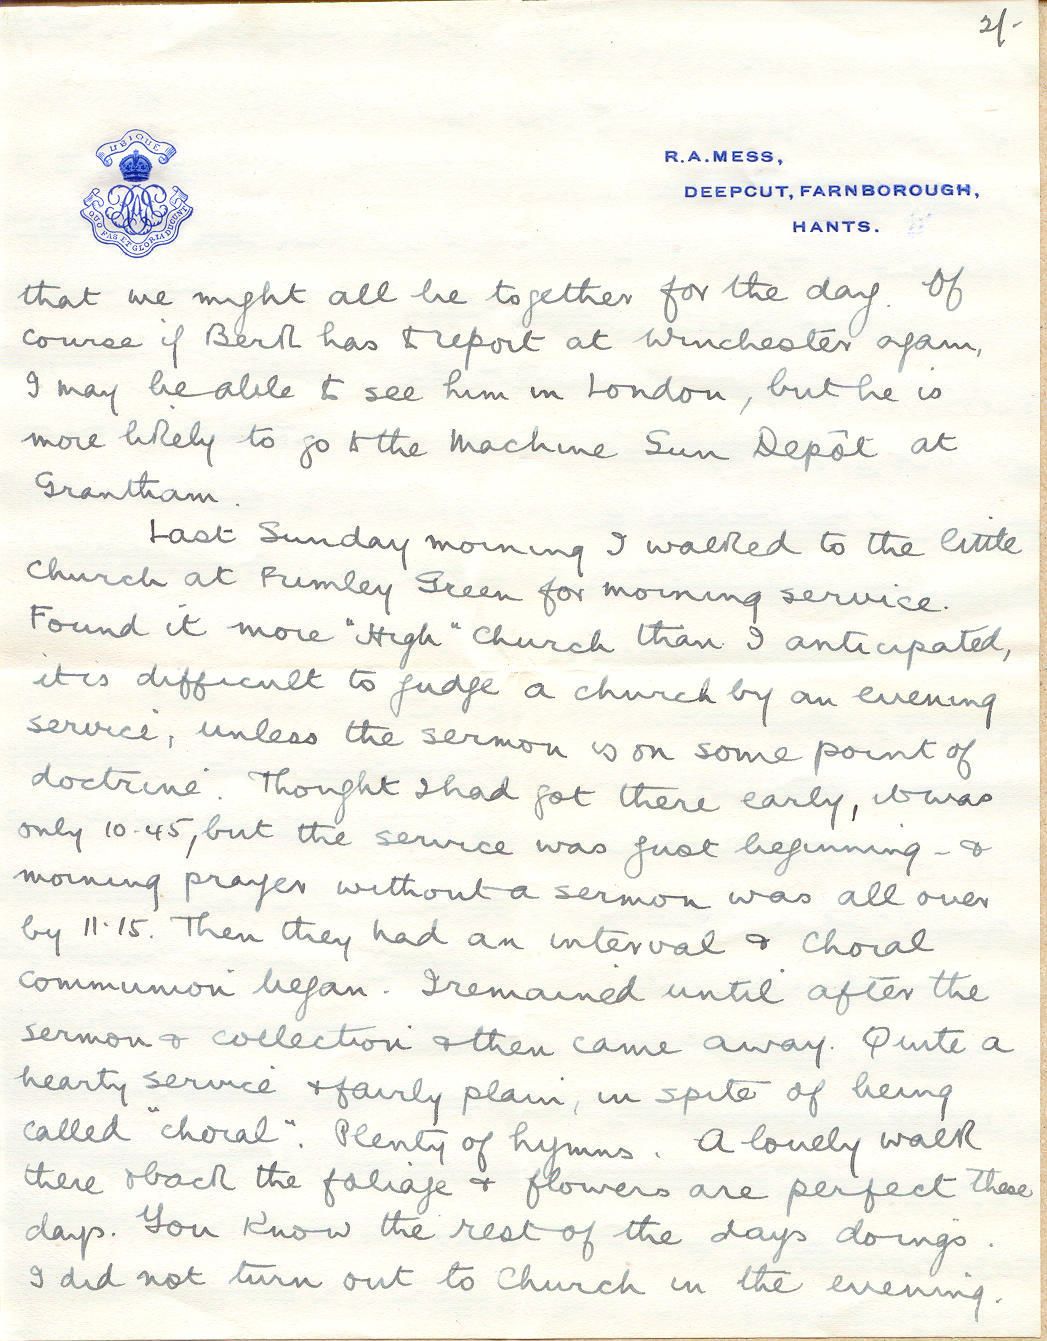 2/-
UBIQUE
QUO FAS ET GLORIA DUCUNT
R.A. MESS,
DEEPCUT, FARNBOROUGH,
HANTS.
that we might all be together for the day. Of
course if Bert has to report at Winchester again,
I may be able to see him in London, but he is
more likely to go to the Machine Gun Depôt at
Grantham.
Last Sunday morning I walked to the little
church at Frimley Green for morning service.
Found it more "High" Church than I anticipated,
it is difficult to judge a church by an evening
service, unless the sermon is on some point of
doctrine. Thought I had got there early, it was
only 10.45, but the service was just beginning - &
morning prayer without a sermon was all over
by 11.15. Then they had an interval & Choral
Communion began. I remained until after the
sermon & collection & then came away. Quite a
hearty service & fairly plain, in spite of being
called "choral". Plenty of hymns. A lovely walk
there & back the foliage & flowers are perfect these
days. You know the rest of the days doings.
I did not turn out to Church in the evening.